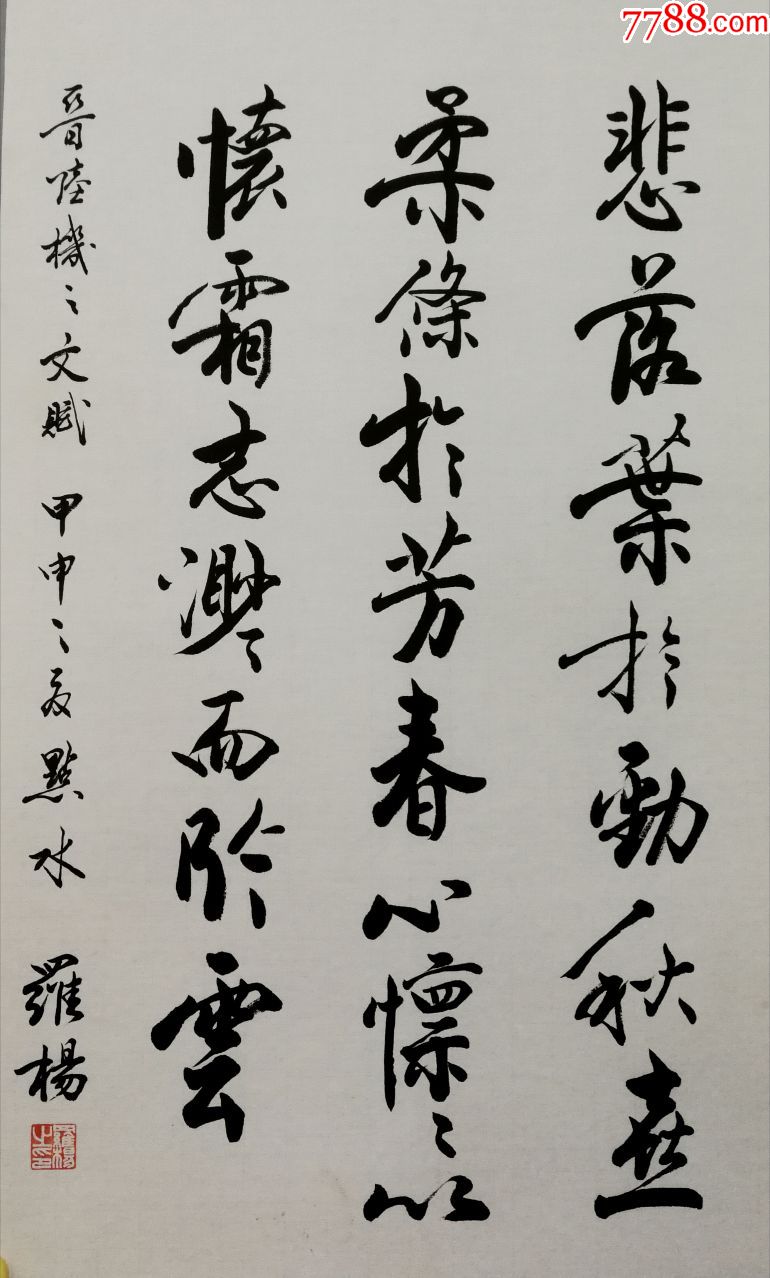 7788.com
悲落葉於勁秋喜
柔條於芳春心懍〻以
懷霜志渺〻而臨雲
晉陸機之文賦 甲申之夏點水 羅楊
羅楊之印